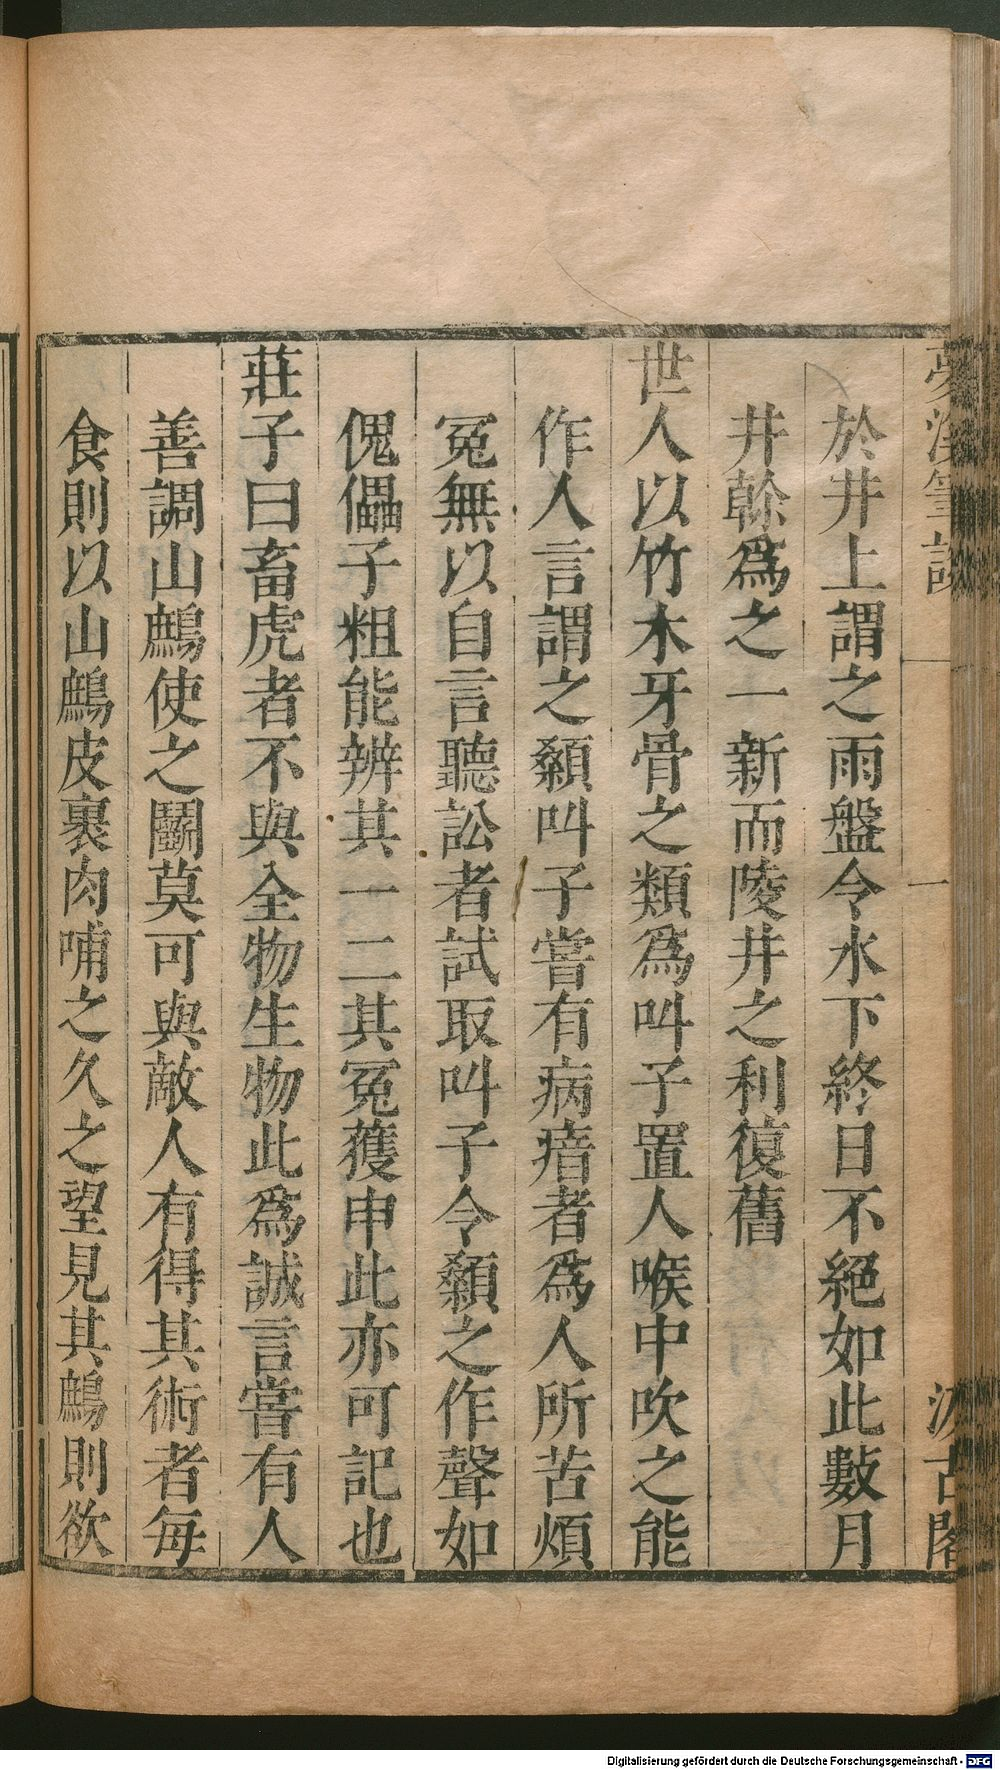 夢溪筆談
汲古閣
於井上謂之雨盤令水下終日不絕如此數月
井幹爲之一新而陵井之利復舊
世人以竹木牙骨之類爲叫子置人喉中吹之能
作人言謂之顙叫子嘗有病瘖者爲人所苦煩
冤無以自言聽訟者試取叫子令顙之作聲如
傀儡子粗能辨其一二其冤獲申此亦可記也
莊子曰畜虎者不與全物生物此爲誠言嘗有人
善調山鷓使之鬭莫可與敵人有得其術者每
食則以山鷓皮裹肉哺之久之望見其鷓則欲
Digitalisierung gefördert durch die Deutsche Forschungsgemeinschaft - DFG